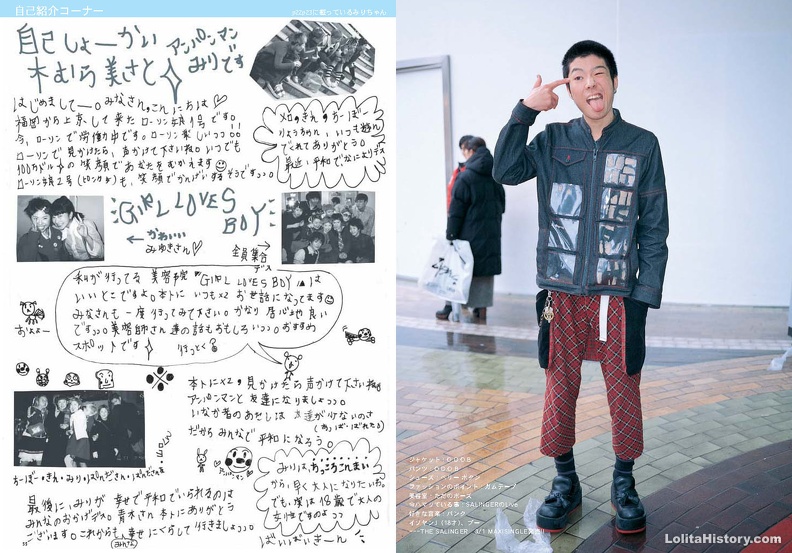 自己紹介コーナー
自己しょーかい アンパンマン
木むら美さと みりです
はじめまして―。みなさん、こんにちは♡
福岡から上京して来たローソン娘1号です。
今、ローソンで労働中です。ローソン楽しいっっ。。!!
ローソンで見かけたら、声かけて下さいね。いつでも
100万ドルの笑顔であなたをむかえます
ローソン娘2号(ピロンタ)も、笑顔でかんげいするそうですっっ。
メロ、きん、ちーぼー
りょうちゃん、いつも遊ん
でくれてありがとう。
最近、平和でなによりデス
GIRL LOVES
BOY
← かわいい
みゆきさん♡
全員集合
デス
私が行ってる 美容院 "GIRL LOVES BOY" は
いいとこですよ。本トに いつも×2 お世話になってます
みなさんも 一度 行ってみて下さい。かなり 居心地 良い
ですっっ。美容師さん達の話もおもしろいっっ。おすすめ
スポットです
行っとく?
おょょ―
本トに×2、見かけたら声かけて下さいね。
アンパンマンと 友達になりましょ!
いなか者のあたしは 友達が少ないのさ
だから みんなで 平和になろう。
みりは、あっっっこんまい
から、早く大人になりたいわ。
でも、僕は18歳で大人の
女性ですのよっっ
最後に、みりが 幸せで平和でいられるのは
みんなのおかげデス。青木さん 本トにありがとう
ございます。これからも、幸せにくらして行きましょっっ。
ばいばいきーん
ジャケット・DDDB
パンツ・DDDB
ファッションのポイント・ガムテープ
美容室・ただのボーズ
今ハマッている事・SALINGERのLive
好きな音楽・パンク
イノヤン!(18才)、プー
---THE SALINGER 3/1 MAXI SINGLE発売!!
LolitaHistory.com